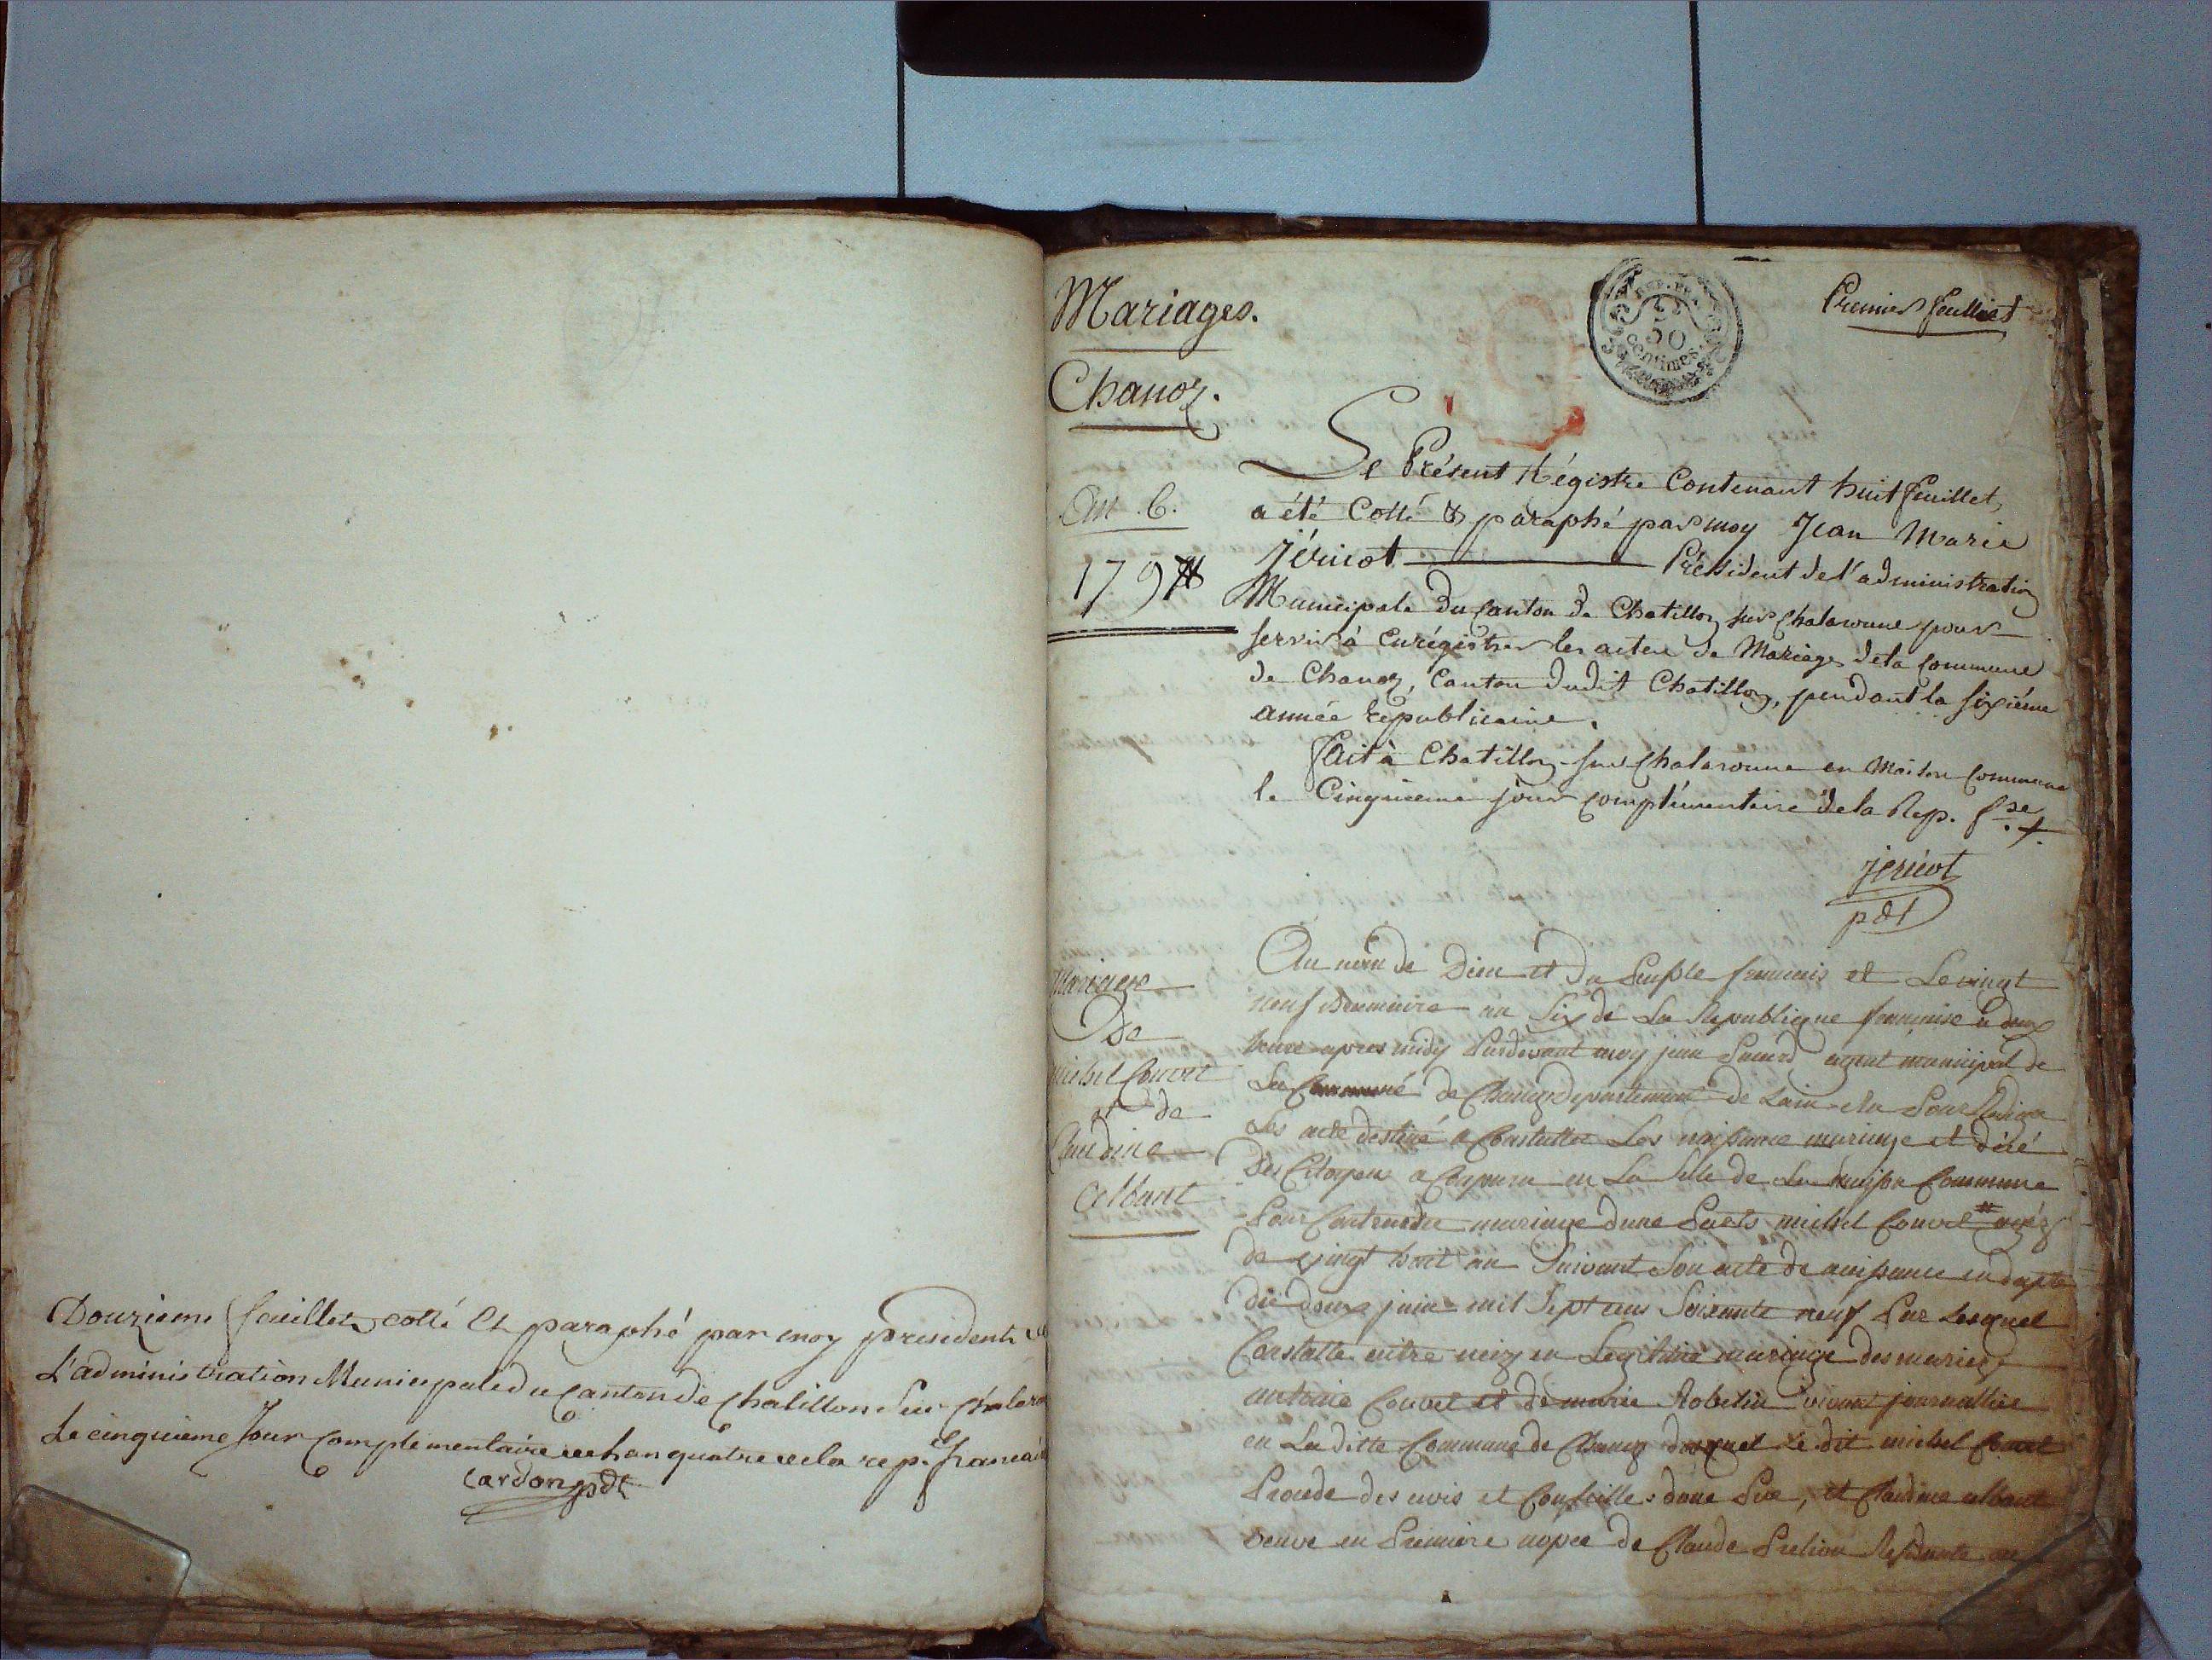 Douzieme feuillet cotté et paraphé par moy president
L'administration Municipale du Canton de Chatillon Sur Chalar
Le cinquieme Jour Complementaire de l'an quatre de la rep. francai
cardon pdt
Mariages.
Chanoz.
An 6.
1797
REP. FRA.
50
centimes
Premier feuillet
Le Présent Régistre Contenant huit feuillet,
a été Cotté & paraphé par moy Jean Marie
Jéricot Président de l'administration
Municipale du Canton de Chatillon sur Chalaronne pour
servir à Enrégistrer les actes de Mariages de la Commune
de Chanoz, Canton dudit Chatillon, pendant la sixiéme
année républicaine.
fait à Chatillon sur Chalaronne en Maison Commune
le Cinquieme jour complémentaire de la Rep. fse
jericot
pdt
Mariage
De
michel Couvet
et de
Claudine
Albant
Au nom de Dieu et Du Peuple francais et Le vingt
neuf an Six de La Republique francaise a deux
heure apres midy Pardevant moy jean agent municipal de
La Commune de Chanoz departement de Lain elu Pour Rediger
Les acte destiné a Constatter Les naissance mariage et décé
Des Citoyens a Comparu en La Salle de La maison Commune
Pour Contracter mariage dune Parts michel Couvet # agéz
de vingt huit an Suivant Son acte de naissance en dapte
du deux juin mil Sept cens Soixante neuf Par Lesquel
Constatte entre neiz en Legitime mariage des mariez
antoine Couvet et de marie Robelin vivant journallier
en La ditte Commune de Chanoz duquel Le dit michel Couvet
Procede des avis et Conseille : dune Par, et Claudine albant
veuve en Premiere nopce de Claude